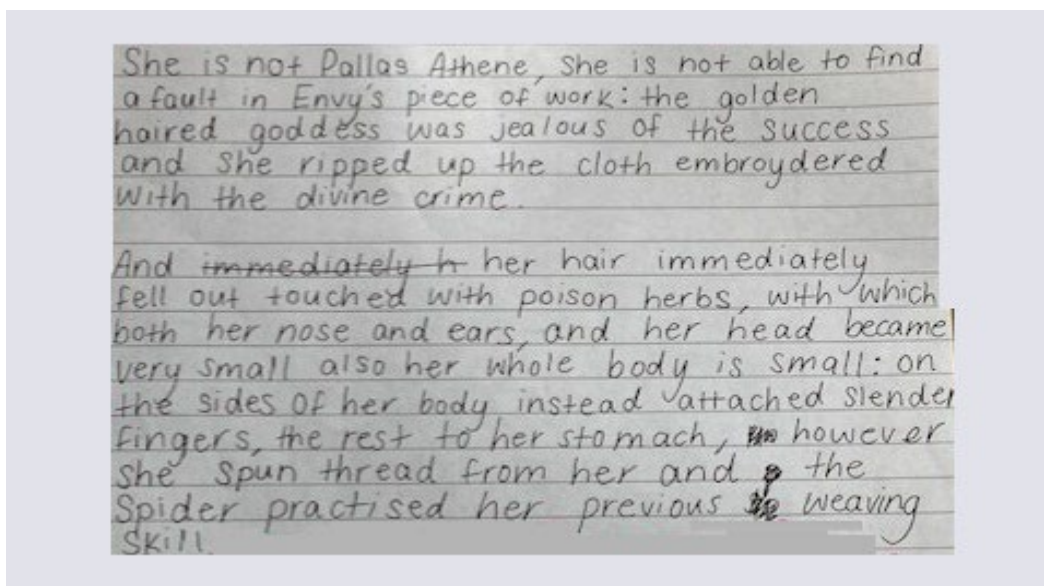 She is not Pallas Athene, she is not able to find
a fault in Envy's piece of work: the golden
haired goddess was jealous of the success
and she ripped up the cloth embroydered
with the divine crime.
And immediately h her hair immediately
fell out touched with poison herbs, with which
both her nose and ears, and her head became
very small also her whole body is small: on
the sides of her body instead attached slender
fingers, the rest to her stomach, however
she spun thread from her and the
spider practised her previous weaving
skill.